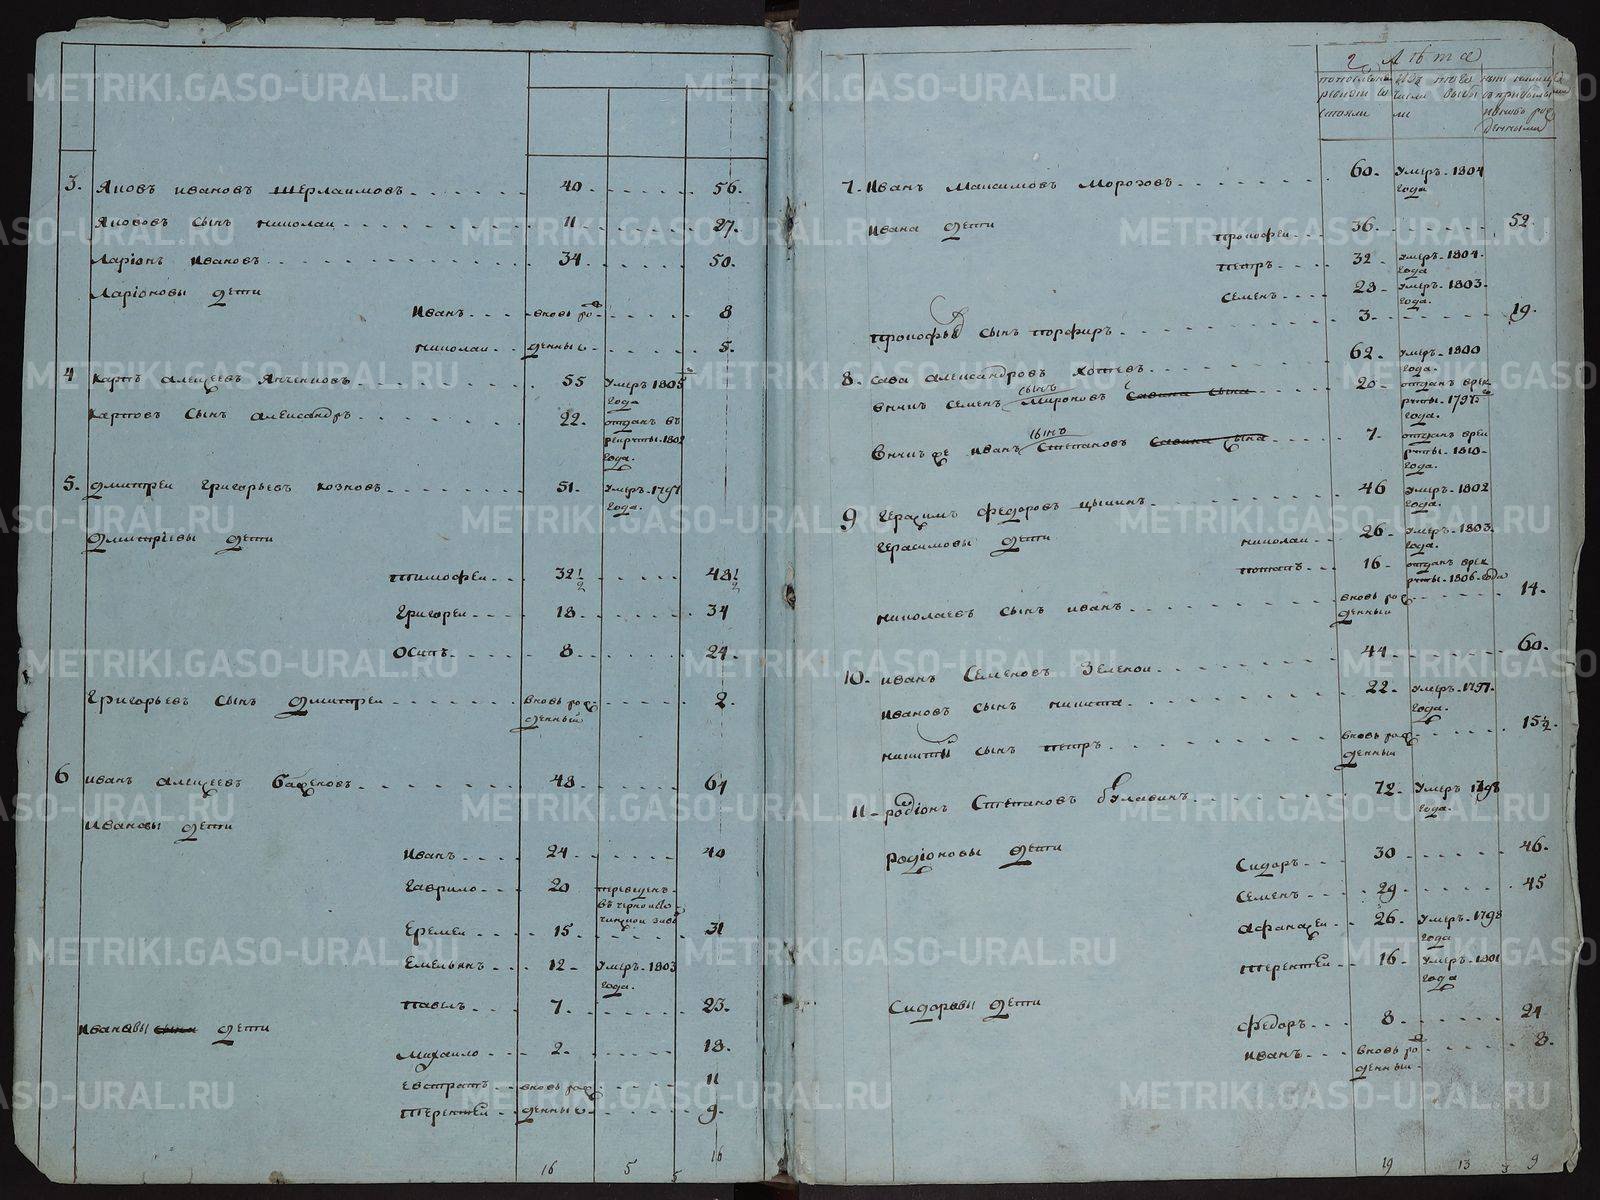 3. Яковъ ивановъ шерлаимовъ 40 56.
Якововъ сынъ николаи 11 27.
Ларіонъ Ивановъ 34 50.
Ларіоновы дети
Иванъ вновь ро 8
николаи денные 5.
4 Карпъ алексеевъ 55 Умеръ 1805
года
Карповъ сынъ александръ 22. отданъ въ
рекруты 1802
года.
5. дмитреи григорьевъ козновъ 51. Умеръ 1797
года.
дмитріевы дети
тимофеи 32 1/2 48 1/2
Григореи 18 34
Осипъ 8 24.
Григорьевъ сынъ дмитреи вновь рож 2.
денный
6 иванъ алексеевъ баженовъ 48 64
Ивановы дети
Иванъ 24 40
Гаврило 20 переведенъ
въ черно
заво
Еремеи 15 31
Емельянъ 12 Умеръ 1803
года.
павелъ 7. 23.
Ивановы дети
михаило 2. 18.
Евстратъ вновь рож 11
терентеи денные 9.
16 5 5 16
2 лѣта
по последнеи изъ того ныне на лицо
ревизіи числа выбы съ прибылыми
состояли ли и вновь рож
денными
7. Иванъ Максимовъ Морозовъ 60. Умеръ 1804
года
Ивана дети
прокофеи 36 52.
петръ 32 Умеръ 1804.
года
семенъ 28 Умеръ 1803.
года.
прокофья сынъ порфиръ 3. 19.
8. Сава александровъ котовъ 62. Умеръ 1800
года.
сынъ
внукъ семенъ Мироновъ савина сына 20 отданъ врек
руты 1797
года.
сынъ
внукъ же иванъ Степановъ савина сына 7. отданъ врек
руты 1810
года.
9 Герасимъ федоровъ 46 Умеръ 1802
года.
Герасимовы дети николаи 26 Умеръ 1803.
года.
потапъ 16 отданъ врек
руты 1806 года
николаевъ сынъ иванъ вновь рож 14.
денный
10. иванъ Семеновъ Зеленои 44 60.
Ивановъ сынъ никита 22. Умеръ 1797.
года.
никиты сынъ петръ вновь рож 15 1/2.
денный
11 родіонъ Степановъ булавинъ 72. Умеръ 1798
года.
Родіоновы дети
Сидоръ 30 46.
Семенъ 29 45
афанасеи 26. Умеръ 1798
года
терентеи 16 Умеръ 1801
года
Сидоровы дети
федоръ 8 24
иванъ вновь ро 8.
денный
19 13 3 9
METRIKI.GASO-URAL.RU